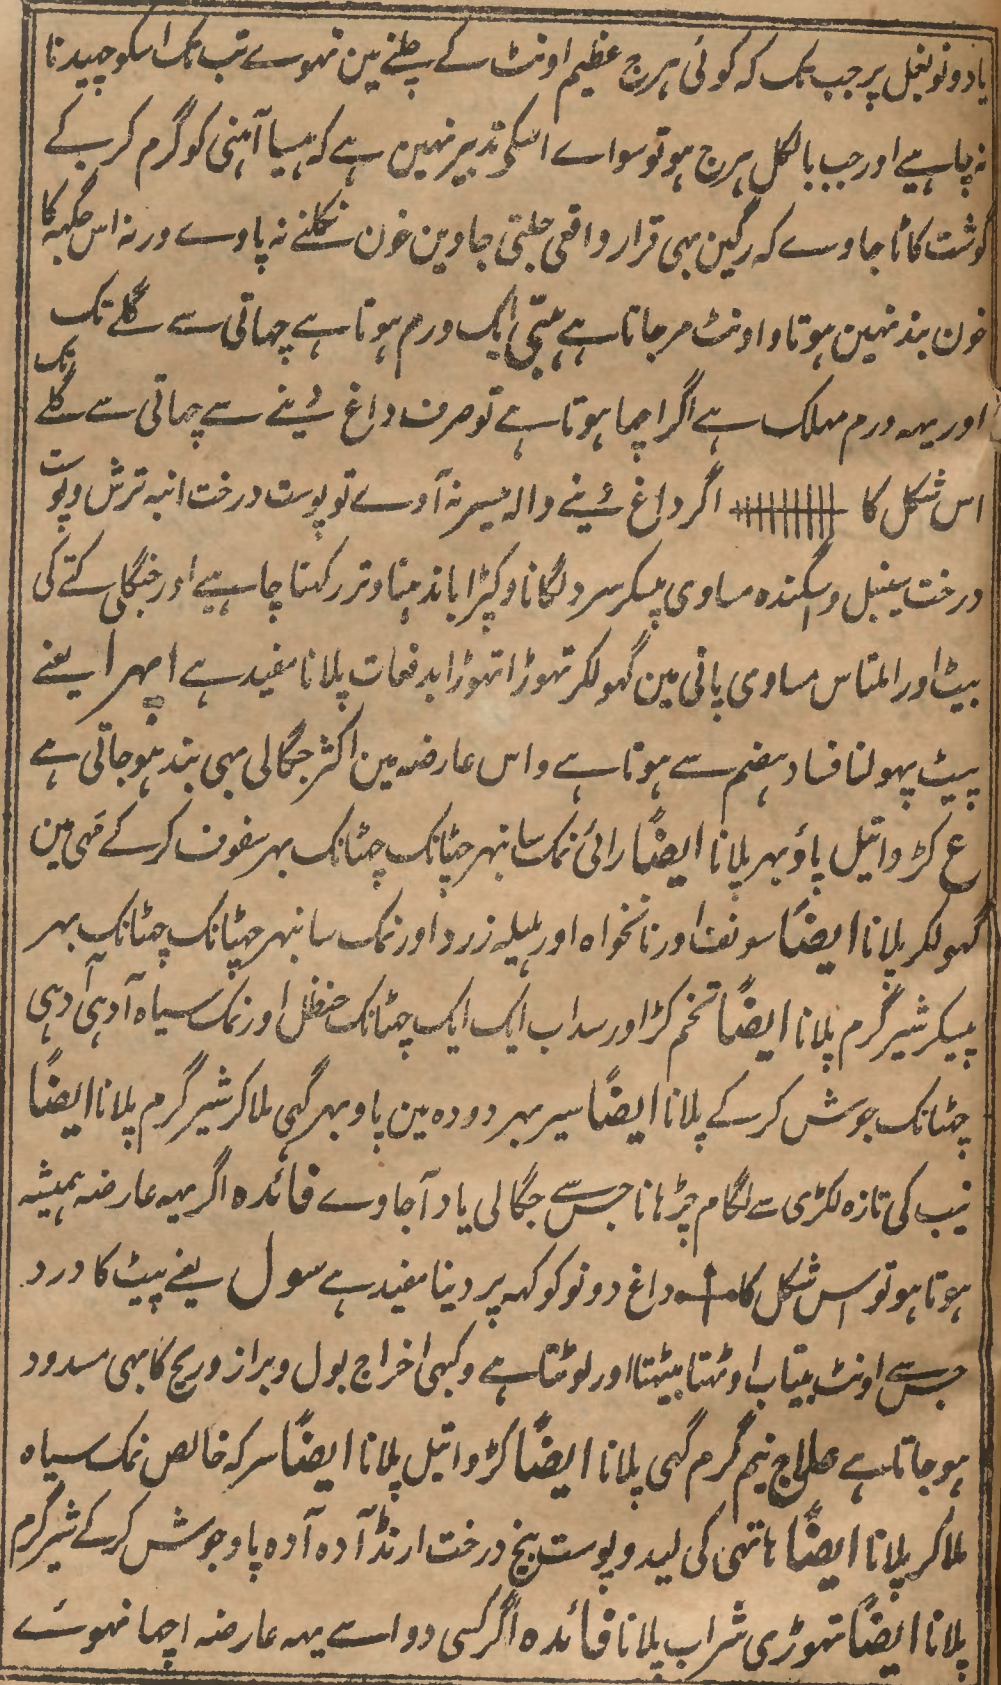 یا دونو بغل پر جب تک کہ کوئی ہرج عظیم اونٹ کے چلنے مین نہووے تب تک اسکو چہیدنا
نہ چاہیے اور جب بالکل ہرج ہو تو سواے اسکی تدبیر نہین ہے کہ ہنسیا آہنی کو گرم کر کے
گوشت کاٹا جاوے کہ رگین بہی قرار واقعی جلتی جاوین خون نکلنے نہ پاوے ورنہ اس جگہہ کا
خون بند نہین ہوتا و اونٹ مر جاتا ہے ایک ورم ہوتا ہے چہاتی سے گلے تک
اور یہہ ورم مہلک ہے اگر اچہا ہوتا ہے تو صرف داغ دینے سے چہاتی سے گلے تک
اس شکل کا اگر داغ دینے والہ میسر نہ آوے تو پوست درخت انبہ ترش و پوست
درخت سینبل و اسگندہ مساوی پیسکر سرد لگانا و کپڑا باندہنا و تر رکہنا چاہیے اور جنگلی کتے کی
بیٹ اور املتاس مساوی پانی مین گہولکر تہوڑا تہوڑا بدفعات پلانا مفید ہے اپہرا یعنے
پیٹ پہولنا فساد ہضم سے ہوتا ہے و اس عارضہ مین اکثر جگالی بہی بند ہو جاتی ہے
ع کڑوا تیل پاؤ بہر پلانا ایضًا رائی نمک سانبہر چہٹانک چہٹانک بہر سفوف کر کے مہی مین
گہولکر پلانا ایضًا سونف اور نانخواہ اور ہلیلہ زرد اور نمک سانبہر چہٹانک چہٹانک بہر
پیسکر شیر گرم پلانا ایضًا تخم کڑ اور سداب ایک ایک چہٹانک حنظل اور نمک سیاہ آدہی آدہی
چہٹانک جوش کر کے پلانا ایضًا سیر بہر دودہ مین پاو بہر گہی ملا کر شیر گرم پلانا ایضًا
نیب کی تازہ لکڑی سے لگام چڑہانا جس سے جگالی یاد آجاوے فائدہ اگر یہہ عارضہ ہمیشہ
ہوتا ہو تو اس شکل کا داغ دونو کوکہہ پر دینا مفید ہے سول یعنے پیٹ کا درد
جس سے اونٹ بیتاب اوٹہتا بیٹہتا اور لوٹتا ہے و کبہی اخراج بول و براز و ریح کا بہی مسدود
ہو جاتا ہے علاج نیم گرم گہی پلانا ایضًا کڑوا تیل پلانا ایضًا سرکہ خالص نمک سیاہ
ملا کر پلانا ایضًا ہاتہی کی لید و پوست بیخ درخت ارنڈ آدہ آدہ پاو جوش کر کے شیر گرم
پلانا ایضًا تہوڑی شراب پلانا فائدہ اگر کسی دوا سے یہہ عارضہ اچہا نہوئے